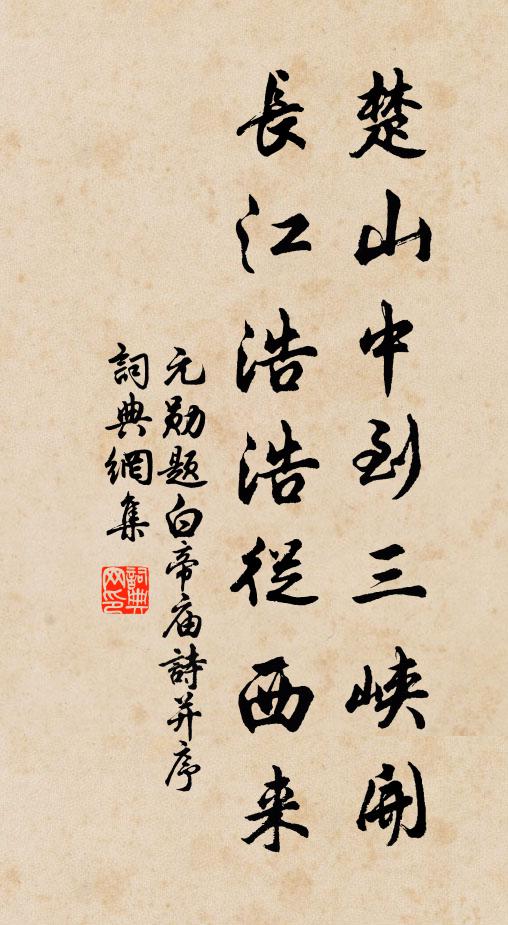 楚山中到三峽開
長江浩浩從西来
元勛題白帝庙詩并序
詞典網集
詞典网印